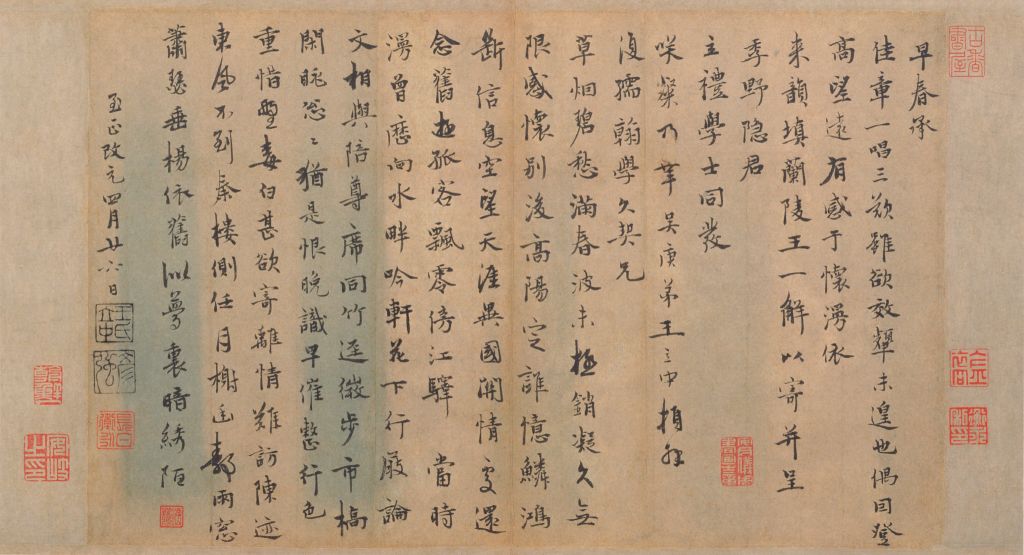 早春承
佳章一唱三歎雖欲效顰未遑也偶因登
高望遠有感于懷漫依
来韻填蘭陵王一解以寄并呈
季野隐君
主禮學士同發
咲粲乃幸吴庚弟王立中頓拜
復孺翰學久契兄
草烟碧愁滿春波未極銷凝久無
限感懷别後高陽定誰憶鱗鴻
斷信息空望天涯異國關情處還
念舊遊孤客飄零傍江驛 當時
漫曾歷向水畔吟軒花下行厨論
文相與陪尊席同竹逕微步市橋
閑眺怱〻猶是恨晚識早催整行色
重惜鬢毛白甚欲寄離情難訪陳迹
東風不到秦樓側任月榭廷鄣雨窓
蕭瑟垂楊依舊似夢裏暗綉陌
至正改元四月廿六日
王氏立中
彦強